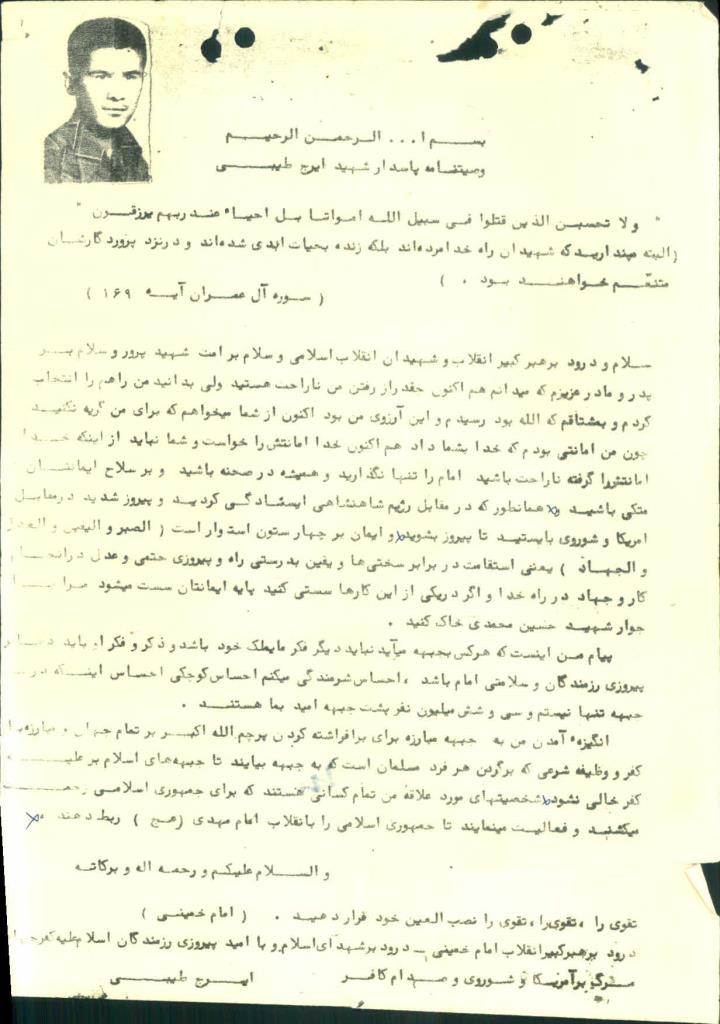 بسم ا... الرحمن الرحیم
وصیتنامه پاسدار شهید ایرج طیبی
" ولا تحسبن الذین قتلوا فی سبیل الله امواتا بل احیاء عند ربهم یرزقون "
( البته مپندارید که شهیدان راه خدا مرده‌اند بلکه زنده بحیات ابدی شده‌اند و در نزد پرورد گارشان
متنعّم خواهند بود . )
( سوره آل عمران آیه ۱۶۹ )
سلام و درود برهبر کبیر انقلاب و شهیدان انقلاب اسلامی و سلام بر امت شهید پرور و سلام بر
پدر و مادر عزیزم که میدانم هم اکنون چقدر از رفتن من ناراحت هستید ولی بدانید من راهم را انتخاب
کردم و بمشتاقم که الله بود رسیدم و این آرزوی من بود اکنون از شما میخواهم که برای من گریه نکنید
چون من امانتی بودم که خدا بشما داد هم اکنون خدا امانتش را خواست و شما نباید از اینکه خدا
امانتش را گرفته ناراحت باشید امام را تنها نگذارید و همیشه در صحنه باشید و بر سلاح ایمانتان
متکی باشید و همانطور که در مقابل رژیم شاهنشاهی ایستادگی کردید و پیروز شدید در مقابل
امریکا و شوروی بایستید تا پیروز بشوید و ایمان بر چهار ستون استوار است ( الصبر و الیقین و العدل
و الجهاد ) یعنی استقامت در برابر سختی‌ها و یقین بدرستی راه و پیروزی حتمی و عدل در انجام
کار و جهاد در راه خدا و اگر در یکی از این کارها سستی کنید پایه ایمانتان سست میشود مرا
جوار شهید حسین محمدی خاک کنید .
پیام من اینست که هرکس بجبهه میآید نباید دیگر فکر مایملک خود باشد و ذکر و فکر او باید
پیروزی رزمندگان و سلامتی امام باشد ، احساس شرمندگی میکنم احساس کوچکی احساس اینکه در
جبهه تنها نیستم و سی و شش میلیون نفر پشت جبهه امید بما هستند .
انگیزه آمدن من به جبهه مبارزه برای برافراشته کردن پرچم الله اکبر بر تمام جهان ، مبارزه با
کفر و وظیفه شرعی که برگردن هر فرد مسلمان است که به جبهه بیایند تا جبهه‌های اسلام بر علیه
کفر خالی نشود شخصیتهای مورد علاقه من تمام کسانی هستند که برای جمهوری اسلامی زحمت
میکشند و فعالیت مینمایند تا جمهوری اسلامی را بانقلاب امام مهدی ( عج ) ربط دهند .
و السلام علیکم و رحمه اله و برکاته
تقوی را ، تقوی را ، تقوی را نصب العین خود قرار دهید . ( امام خمینی )
درود برهبر کبیر انقلاب امام خمینی - درود بر شهدای اسلام و با امید پیروزی رزمندگان اسلام علیه کفر
مرگ بر آمریکا و شوروی و صدام کافر
ایرج طیبی